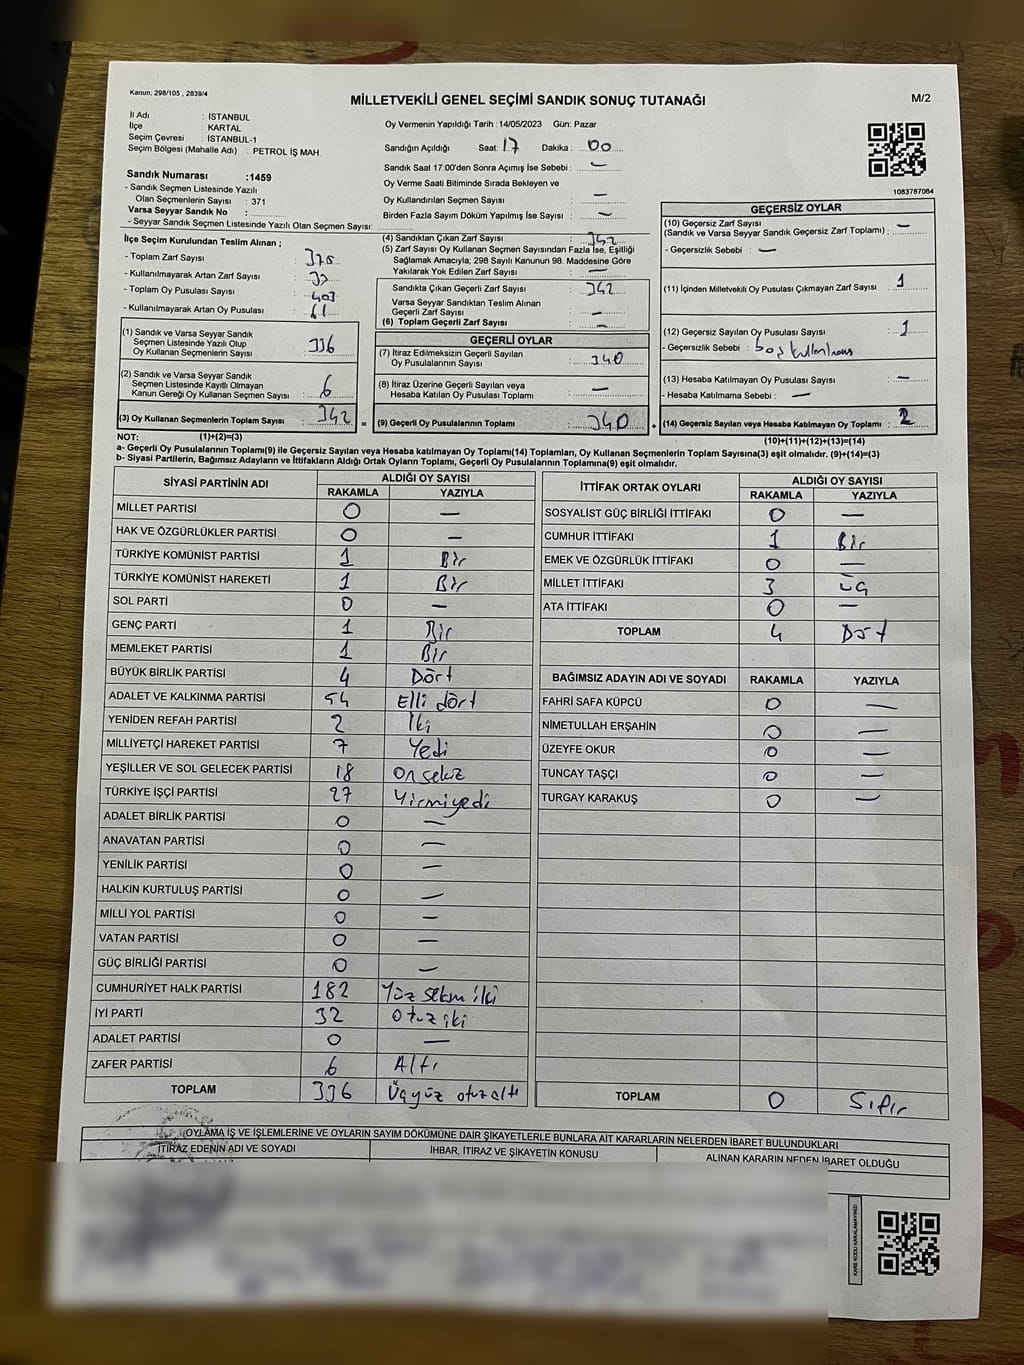 Kanun; 298/105 , 2839/4
MİLLETVEKİLİ GENEL SEÇİMİ SANDIK SONUÇ TUTANAĞI
M/2
İl Adı : İSTANBUL
İlçe : KARTAL
Seçim Çevresi : İSTANBUL-1
Seçim Bölgesi (Mahalle Adı) : PETROL İŞ MAH.
Sandık Numarası :1459
- Sandık Seçmen Listesinde Yazılı
Olan Seçmenlerin Sayısı : 371
Varsa Seyyar Sandık No :
- Seyyar Sandık Seçmen Listesinde Yazılı Olan Seçmen Sayısı:
Oy Vermenin Yapıldığı Tarih :14/05/2023 Gün: Pazar
Sandığın Açıldığı Saat: 17 Dakika : 00
Sandık Saat 17:00'den Sonra Açımış İse Sebebi : —
Oy Verme Saati Bitiminde Sırada Bekleyen ve
Oy Kullandırılan Seçmen Sayısı : —
Birden Fazla Sayım Döküm Yapılmış İse Sayısı : —
1083787064
İlçe Seçim Kurulundan Teslim Alınan ;
- Toplam Zarf Sayısı : 375
- Kullanılmayarak Artan Zarf Sayısı : 33
- Toplam Oy Pusulası Sayısı : 403
- Kullanılmayarak Artan Oy Pusulası : 61
(1) Sandık ve Varsa Seyyar Sandık
Seçmen Listesinde Yazılı Olup
Oy Kullanan Seçmenlerin Sayısı : 336
(2) Sandık ve Varsa Seyyar Sandık
Seçmen Listesinde Kayıtlı Olmayan
Kanun Gereği Oy Kullanan Seçmen Sayısı : 6
(3) Oy Kullanan Seçmenlerin Toplam Sayısı : 342
(4) Sandıktan Çıkan Zarf Sayısı : 342
(5) Zarf Sayısı Oy Kullanan Seçmen Sayısından Fazla İse, Eşitliği
Sağlamak Amacıyla; 298 Sayılı Kanunun 98. Maddesine Göre
Yakılarak Yok Edilen Zarf Sayısı : —
Sandıkta Çıkan Geçerli Zarf Sayısı : 342
Varsa Seyyar Sandıktan Teslim Alınan
Geçerli Zarf Sayısı : —
(6) Toplam Geçerli Zarf Sayısı : —
GEÇERLİ OYLAR
(7) İtiraz Edilmeksizin Geçerli Sayılan
Oy Pusulalarının Sayısı : 340
(8) İtiraz Üzerine Geçerli Sayılan veya
Hesaba Katılan Oy Pusulası Toplamı : —
= (9) Geçerli Oy Pusulalarının Toplamı : 340 +
GEÇERSİZ OYLAR
(10) Geçersiz Zarf Sayısı
(Sandık ve Varsa Seyyar Sandık Geçersiz Zarf Toplamı) : —
- Geçersizlik Sebebi : —
(11) İçinden Milletvekili Oy Pusulası Çıkmayan Zarf Sayısı : 1
(12) Geçersiz Sayılan Oy Pusulası Sayısı : 1
- Geçersizlik Sebebi : boş
(13) Hesaba Katılmayan Oy Pusulası Sayısı : —
- Hesaba Katılmama Sebebi : —
(14) Geçersiz Sayılan veya Hesaba Katılmayan Oy Toplamı : 2
NOT: (1)+(2)=(3) (10)+(11)+(12)+(13)=(14)
a- Geçerli Oy Pusulalarının Toplamı(9) ile Geçersiz Sayılan veya Hesaba katılmayan Oy Toplamı(14) Toplamları, Oy Kullanan Seçmenlerin Toplam Sayısına(3) eşit olmalıdır. (9)+(14)=(3)
b- Siyasi Partilerin, Bağımsız Adayların ve İttifakların Aldığı Ortak Oyların Toplamı, Geçerli Oy Pusulalarının Toplamına(9) eşit olmalıdır.
SİYASİ PARTİNİN ADI ALDIĞI OY SAYISI
RAKAMLA YAZIYLA
MİLLET PARTİSİ 0 —
HAK VE ÖZGÜRLÜKLER PARTİSİ 0 —
TÜRKİYE KOMÜNİST PARTİSİ 1 Bir
TÜRKİYE KOMÜNİST HAREKETİ 1 Bir
SOL PARTİ 0 —
GENÇ PARTİ 1 Bir
MEMLEKET PARTİSİ 1 Bir
BÜYÜK BİRLİK PARTİSİ 4 Dört
ADALET VE KALKINMA PARTİSİ 54 Elli dört
YENİDEN REFAH PARTİSİ 2 İki
MİLLİYETÇİ HAREKET PARTİSİ 7 Yedi
YEŞİLLER VE SOL GELECEK PARTİSİ 18 Onsekiz
TÜRKİYE İŞÇİ PARTİSİ 27 Yirmiyedi
ADALET BİRLİK PARTİSİ 0 —
ANAVATAN PARTİSİ 0 —
YENİLİK PARTİSİ 0 —
HALKIN KURTULUŞ PARTİSİ 0 —
MİLLİ YOL PARTİSİ 0 —
VATAN PARTİSİ 0 —
GÜÇ BİRLİĞİ PARTİSİ 0 —
CUMHURİYET HALK PARTİSİ 182 Yüz seksn iki
İYİ PARTİ 32 Otuz iki
ADALET PARTİSİ 0 —
ZAFER PARTİSİ 6 Altı
TOPLAM 336 Üçyüz otuz altı
İTTİFAK ORTAK OYLARI ALDIĞI OY SAYISI
RAKAMLA YAZIYLA
SOSYALİST GÜÇ BİRLİĞİ İTTİFAKI 0 —
CUMHUR İTTİFAKI 1 Bir
EMEK VE ÖZGÜRLÜK İTTİFAKI 0 —
MİLLET İTTİFAKI 3 Üç
ATA İTTİFAKI 0 —
TOPLAM 4 Dört
BAĞIMSIZ ADAYIN ADI VE SOYADI RAKAMLA YAZIYLA
FAHRİ SAFA KÜPCÜ 0 —
NİMETULLAH ERŞAHİN 0 —
ÜZEYFE OKUR 0 —
TUNCAY TAŞÇI 0 —
TURGAY KARAKUŞ 0 —
TOPLAM 0 Sıfır
OYLAMA İŞ VE İŞLEMLERİNE VE OYLARIN SAYIM DÖKÜMÜNE DAİR ŞİKAYETLERLE BUNLARA AİT KARARLARIN NELERDEN İBARET BULUNDUKLARI
İTİRAZ EDENİN ADI VE SOYADI İHBAR, İTİRAZ VE ŞİKAYETİN KONUSU ALINAN KARARIN NEDEN İBARET OLDUĞU
KARE KODU KARALAMAYINIZ!